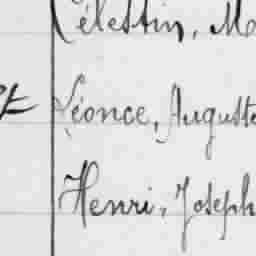 Célestin, M
Léonce, Auguste
Henri, Joseph